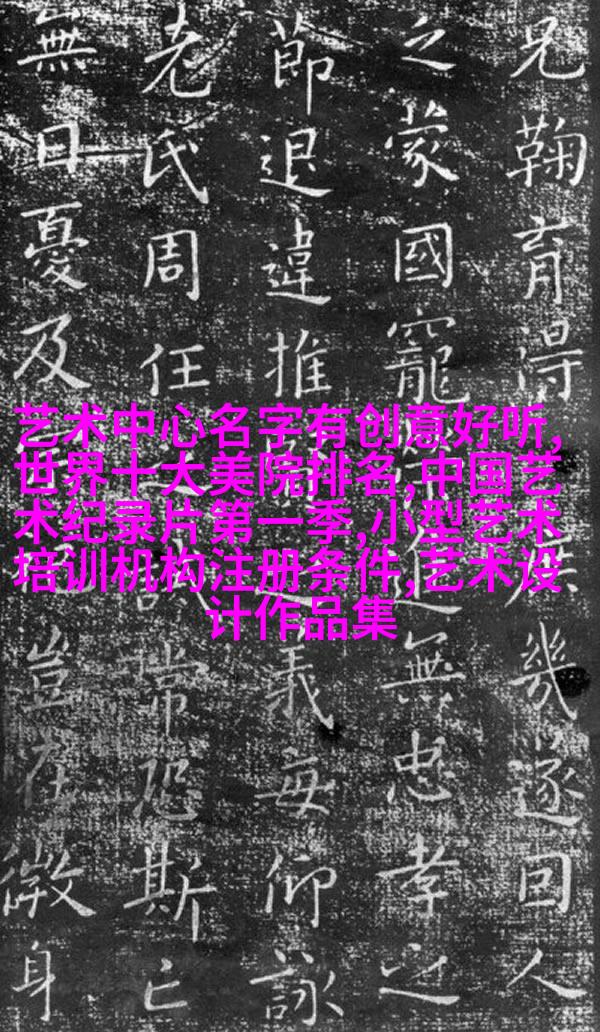 兄鞠育得幾遂回人
之蒙國寵進無忠孝之
節退違推義每仰詠
老氏周任常恐斯亡
無日憂及豈在微身
艺术中心名字有创意好听,
世界十大美院排名,中国艺
术纪录片第一季,小型艺术
培训机构注册条件,艺术设
计作品集